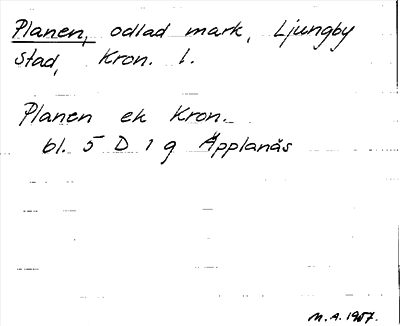 Planen, odlad mark, Ljungby
stad, Kron. l.
Planen ek Kron.
bl. 5 D 1 g Äpplanäs
M.A. 1957.